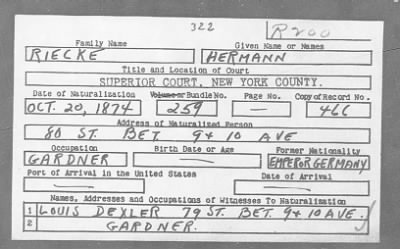 322
R200
Family Name Given Name or Names
RIECKE HERMANN
Title and Location of Court
SUPERIOR COURT, NEW YORK COUNTY.
Date of Naturalization Volume or Bundle No. Page No. Copy of Record No.
OCT. 20, 1874 259 — 466
Address of Naturalized Person
80 ST. BET 9+10 AVE
Occupation Birth Date or Age Former Nationality
GARDNER — EMPEROR GERMANY
Port of Arrival in the United States Date of Arrival
— —
Names, Addresses and Occupations of Witnesses To Naturalization
1 LOUIS DEXLER 79 ST. BET 9+10 AVE.
2 GARDNER.